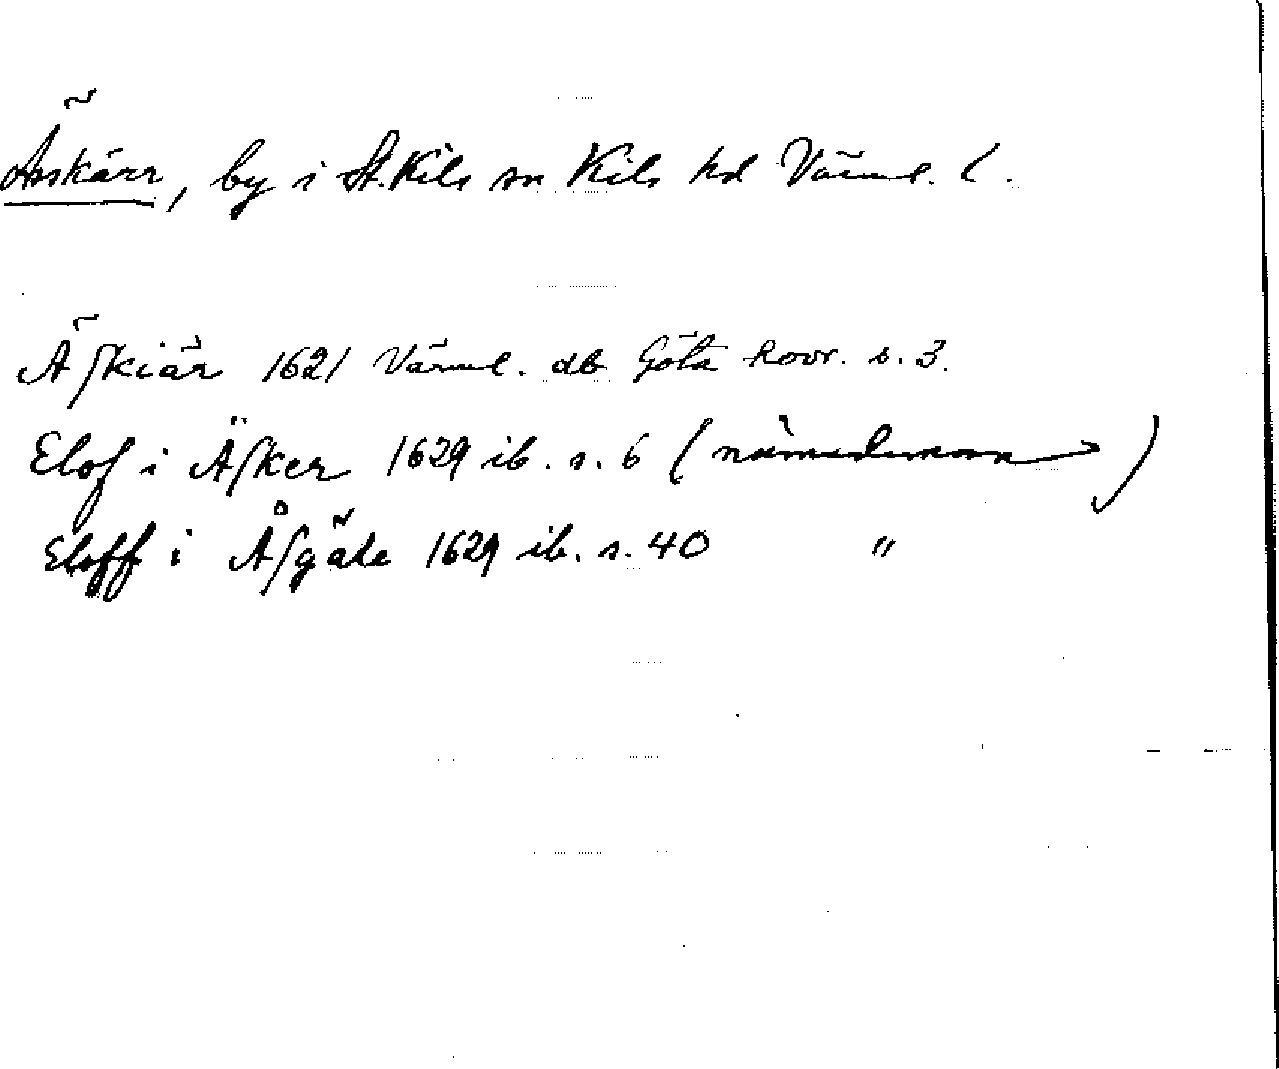 Äskärr, by i St. Kils sn Kils hd Värml. l.
Äſkiär 1621 Värml. db Göta hovr. s. 3.
Elof i Äſker 1629 ib. s. 6 (nämndeman)
Eloff i Åſgäle 1629 ib. s. 40 "